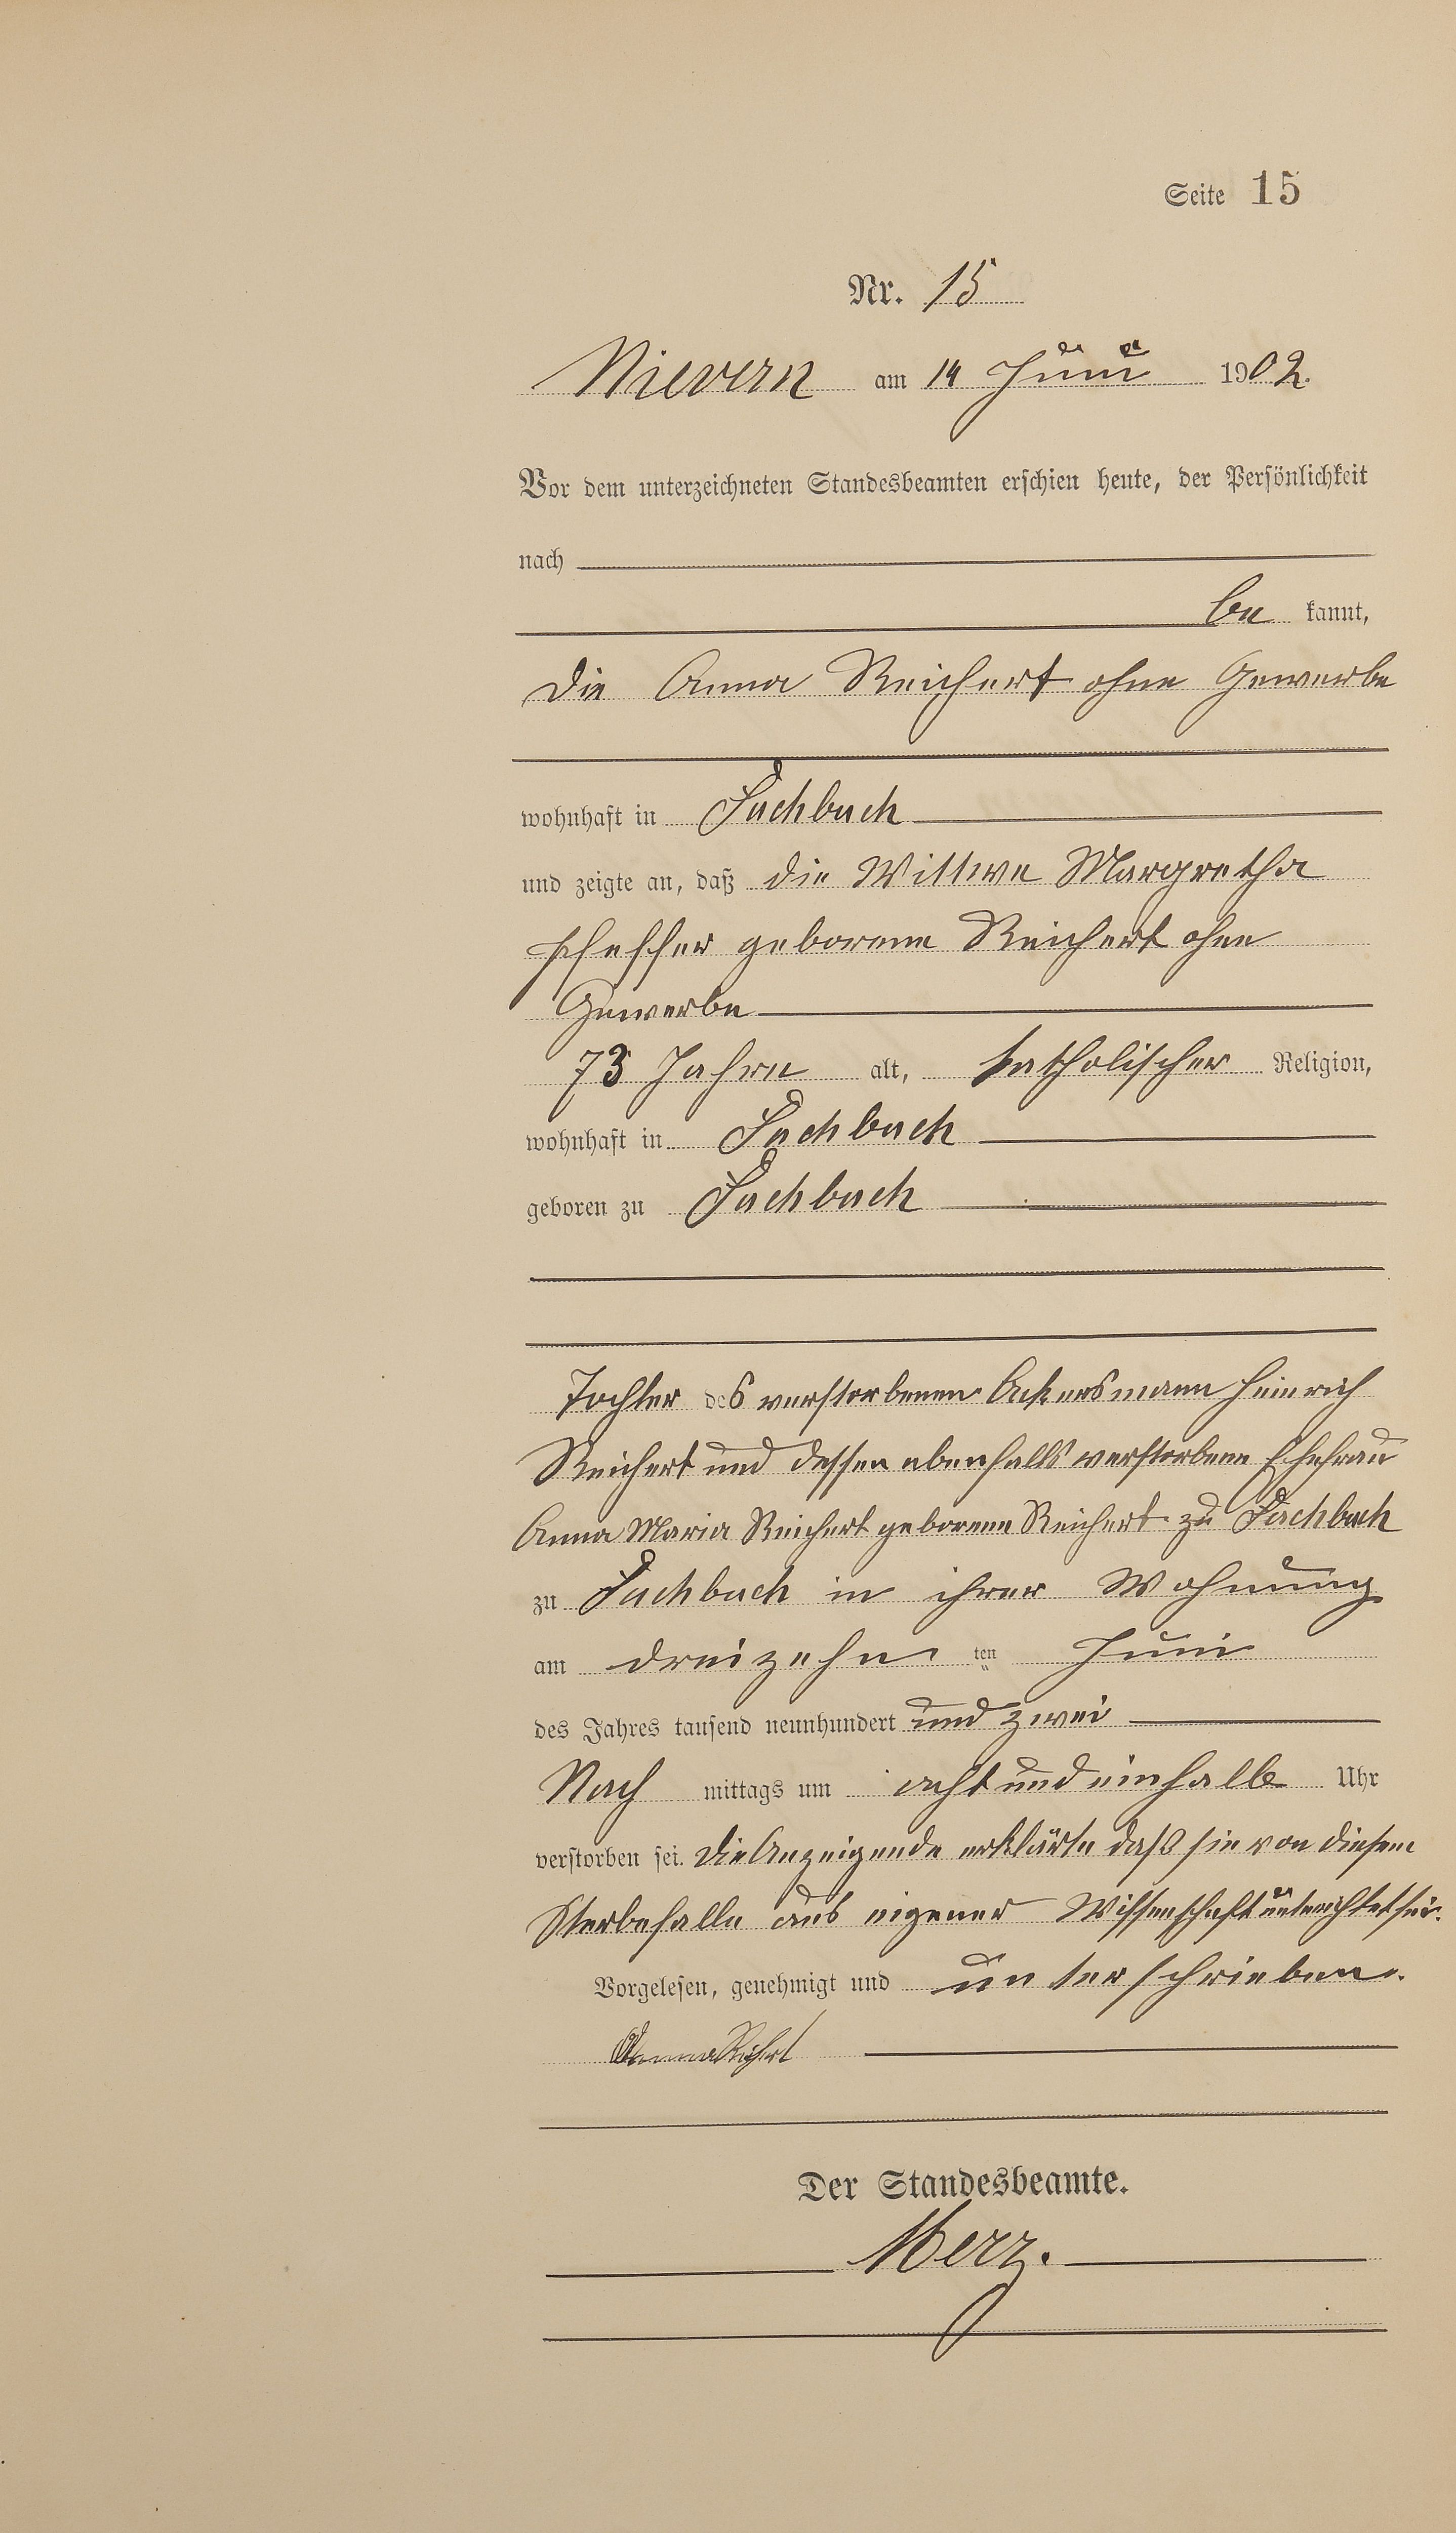 Seite 15
Nr. 15
Nievern am 14 Juni 1902.
Vor dem unterzeichneten Standesbeamten erschien heute, der Persönlichkeit
nach
be kannt,
die Anna Reichert ohne Gewerbe
wohnhaft in Fachbach
und zeigte an, daß die Wittwe Margretha
Pfeffer geborene Reichert ohne
Gewerbe
73 Jahre alt, katholischer Religion,
wohnhaft in Fachbach
geboren zu Fachbach
Tochter des verstorbenen Ackersmann Heinrich
Reichert und dessen ebenfalls verstorbene Ehefrau
Anna Maria Reichert geborene Reichert zu Fachbach
zu Fachbach in ihrer Wohnung
am dreizehn ten Juni
des Jahres tausend neunhundert und zwei
Nach mittags um acht und einhalb Uhr
verstorben sei. Die Anzeigende erklärte daß sie von diesem
Sterbefalle aus eigener Wissenschaft unterrichtet sei.
Vorgelesen, genehmigt und unterschrieben.
Anna Reichert
Der Standesbeamte.
Merz.